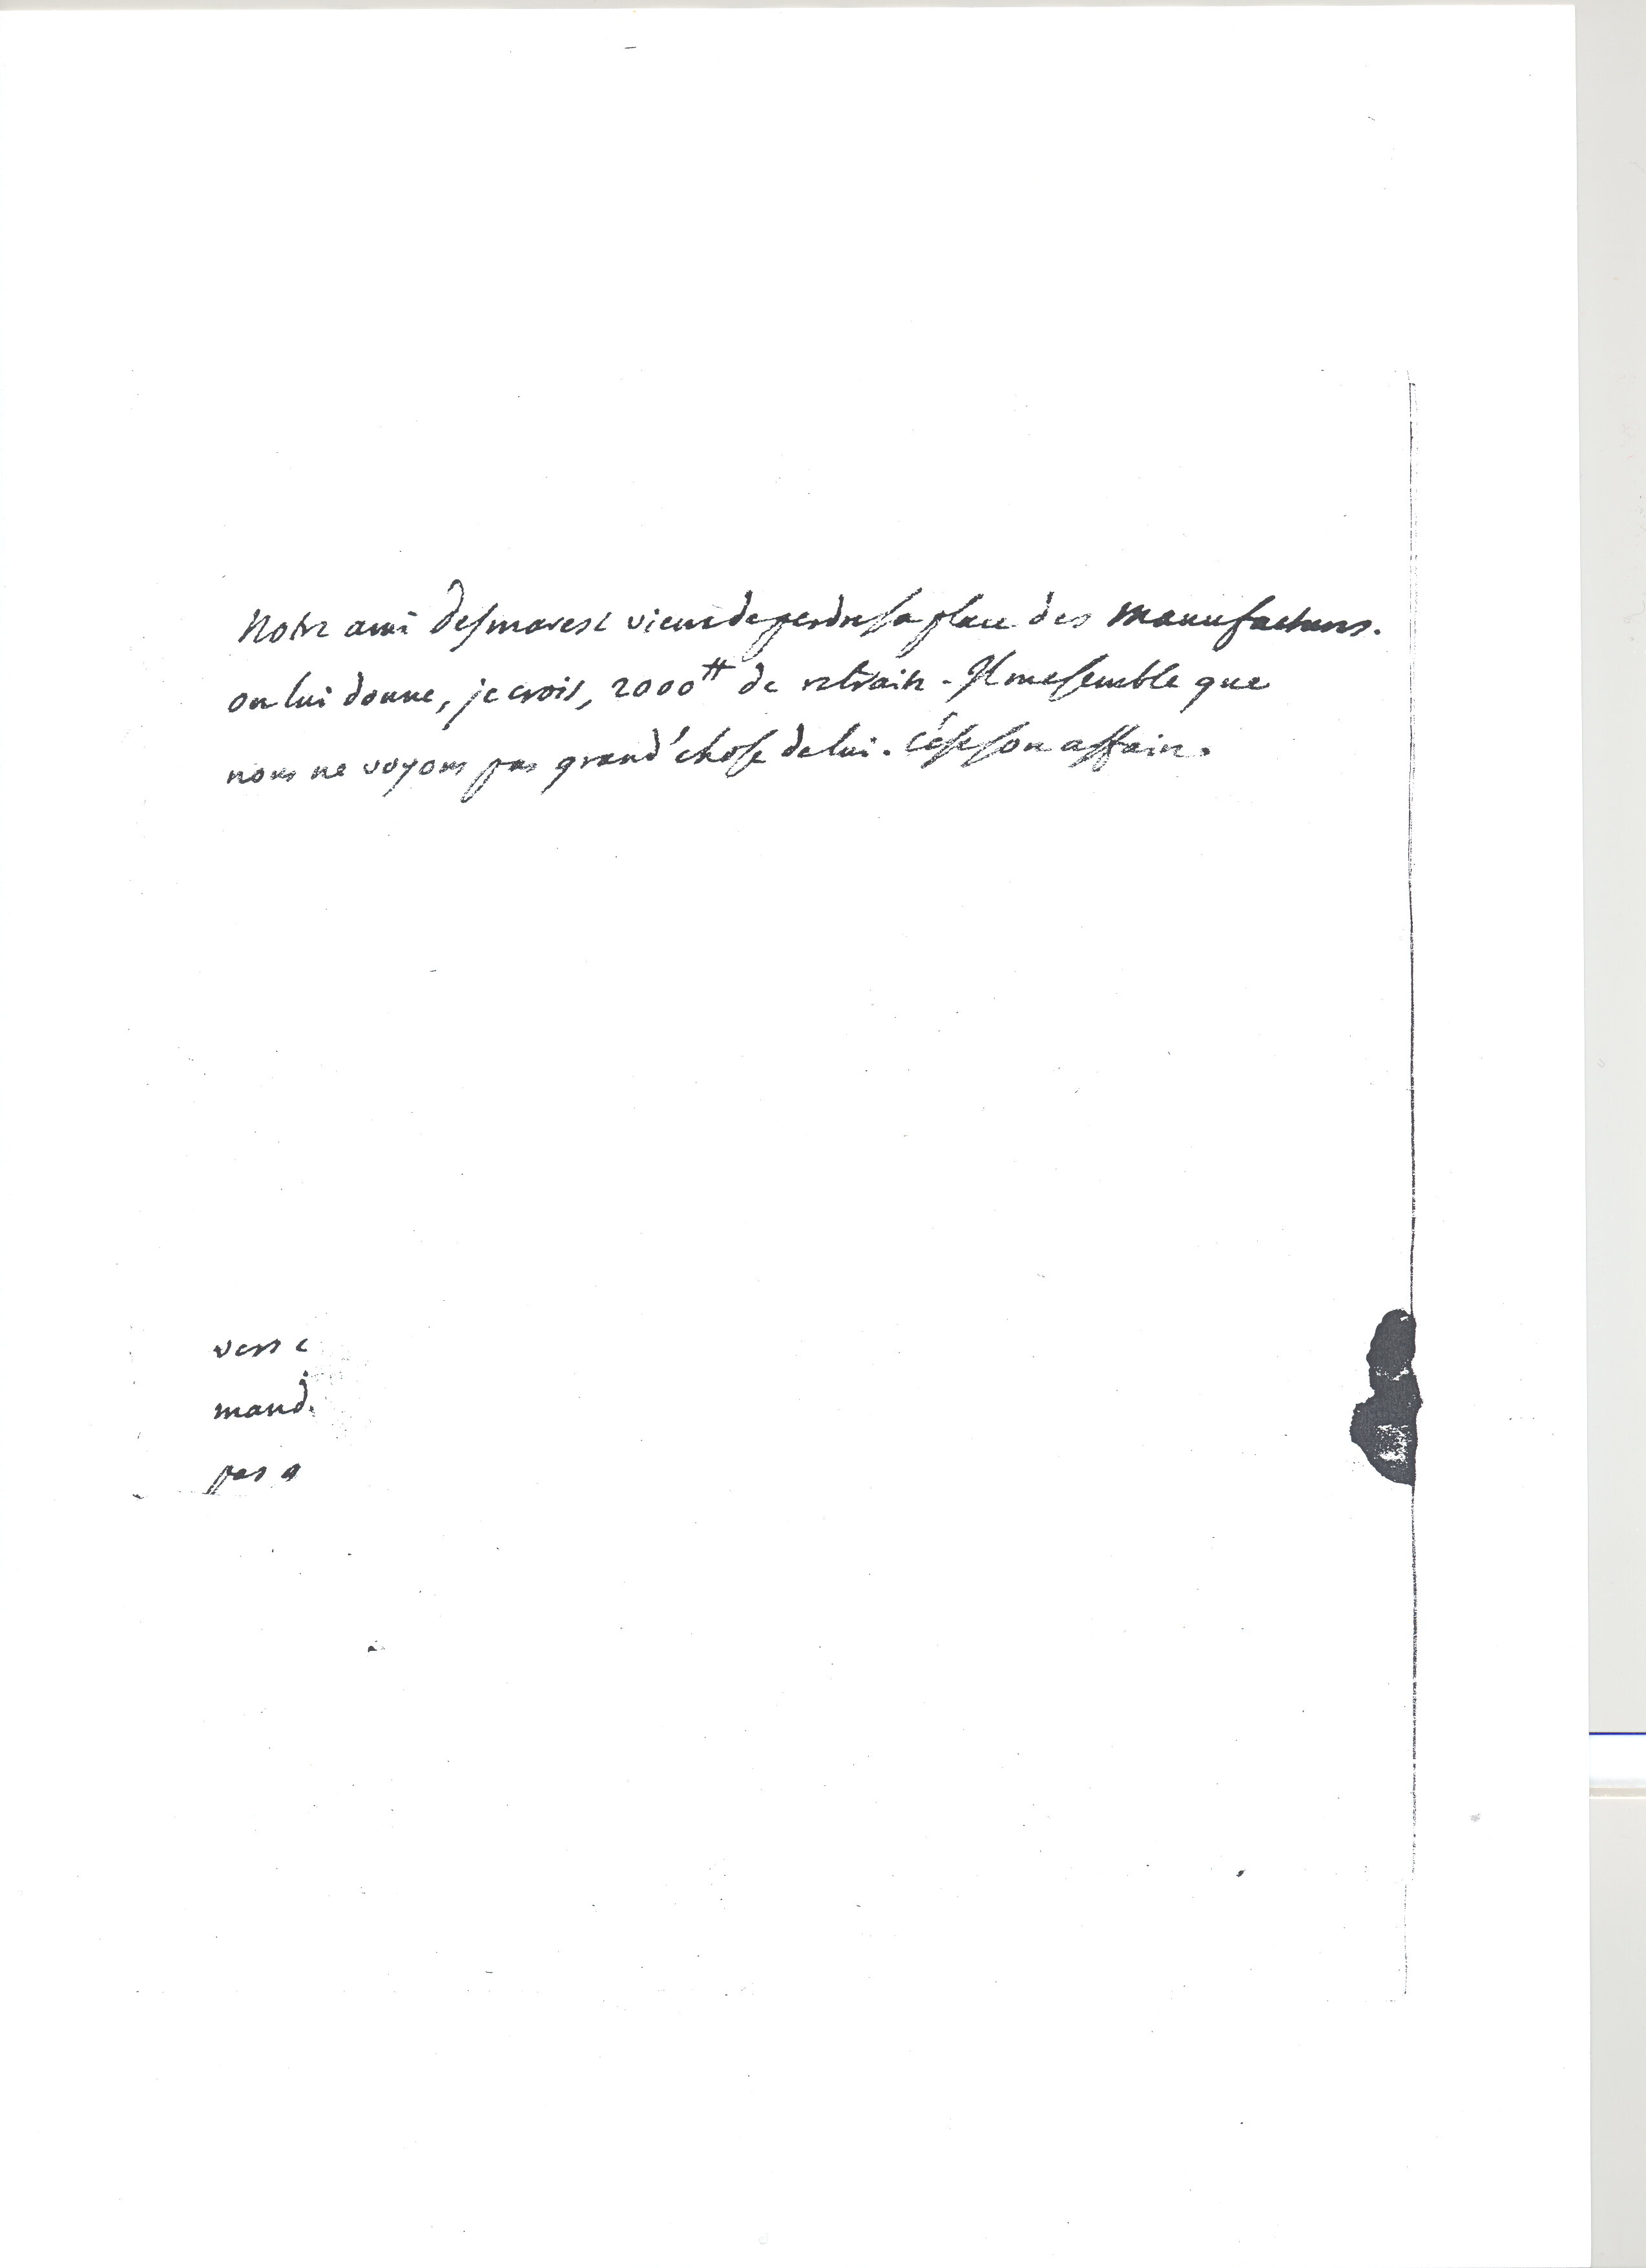 Notre ami desmarest vient de perdre sa place des manufactures.
on lui donne, je crois, 2000# de retraite. Il me semble que
nous ne voyons pas grand'chose de lui. c'est son affaire.
vers c
mand.
pas a